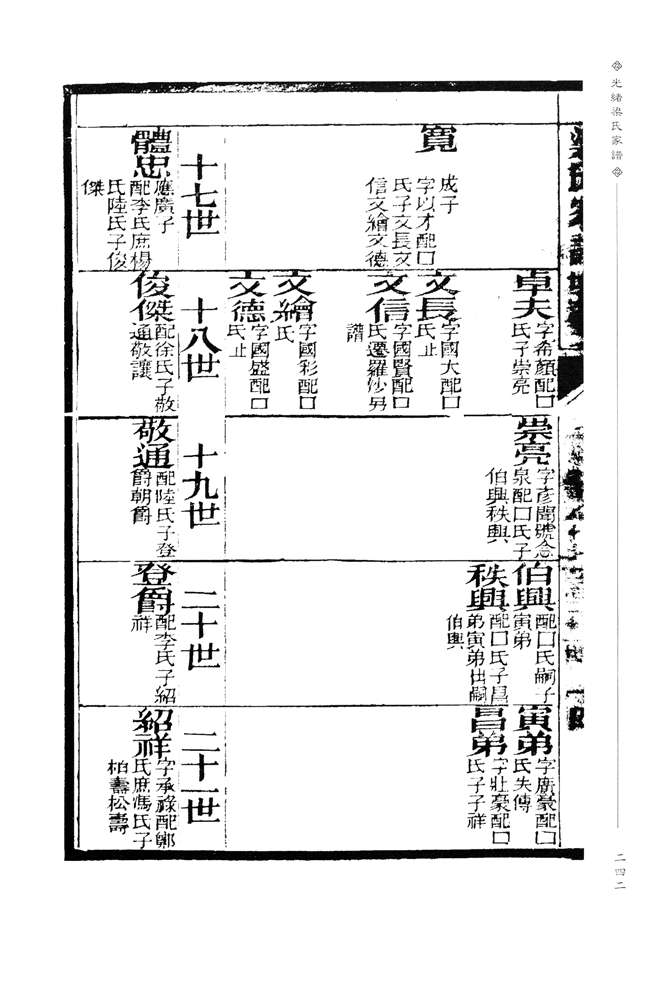 光緒梁氏家譜
二四二
寬
成子
字以才配口
氏子文長文
信文繪文德
十七世
體忠
應廣子
配李氏庶楊
氏陸氏子俊
傑
卓夫
字希顏配口
氏子崇亮
文長
字國大配口
氏止
文信
字國賢配口
氏遷羅紗另
譜
文繪
字國彩配口
氏
文德
字國盛配口
氏止
十八世
俊傑
配徐氏子敬
通敬讓
崇亮
字彥聞號念
泉配口氏子
伯興秩興
十九世
敬通
配陸氏子登
爵朝爵
伯興
配口氏嗣子
寅弟
秩興
配口氏子昌
弟寅弟出嗣
伯興
二十世
登爵
配李氏子紹
祥
寅弟
字廣豪配口
氏失傳
昌弟
字壯豪配口
氏子子祥
二十一世
紹祥
字承祿配鄭
氏庶馮氏子
柏壽松壽